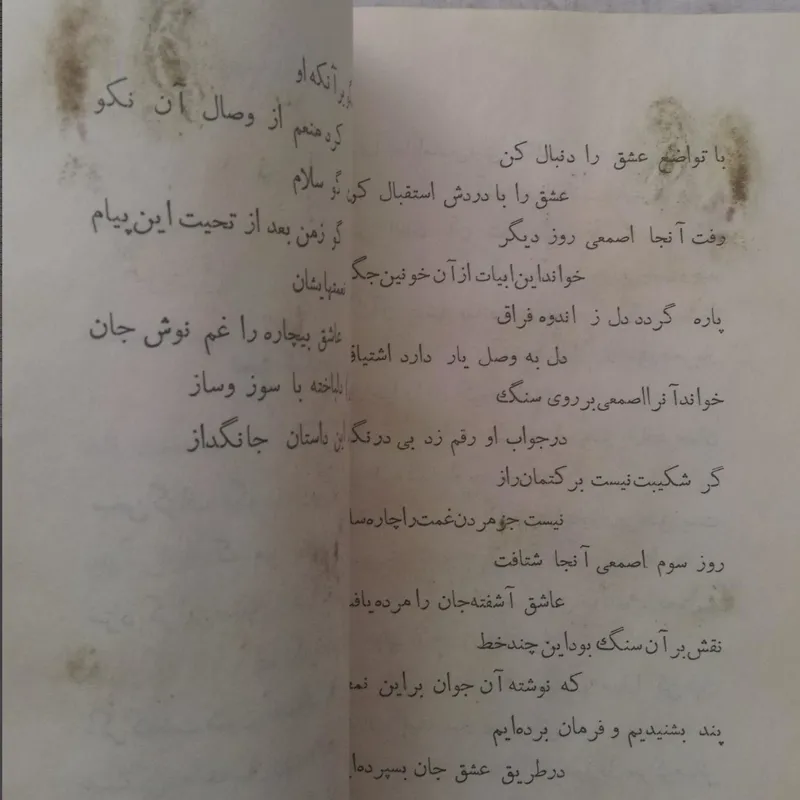 با تواضع عشق را دنبال کن
عشق را با دردش استقبال کن
رفت آنجا اصمعی روز دیگر
خواند این ابیات از آن خونین جگ
پاره گردد دل ز اندوه فراق
دل به وصل یار دارد اشتیاق
خواند آنرا اصمعی بر روی سنگ
در جواب او رقم زد بی درنگ
گر شکیبت نیست بر کتمان راز
نیست جز مردن غمت را چاره سا
روز سوم اصمعی آنجا شتافت
عاشق آشفته جان را مرده یافت
نقش بر آن سنگ بود این چند خط
که نوشته آن جوان بر این نمط
پند بشنیدیم و فرمان برده‌ایم
در طریق عشق جان بسپرده‌ا
بر آنکه او
کرد منعم از وصال آن نکو
گو سلام
گو زمن بعد از تحیت این پیام
عاشق بیچاره را غم نوش جان
دلباخته با سوز وساز
این داستان جانگداز